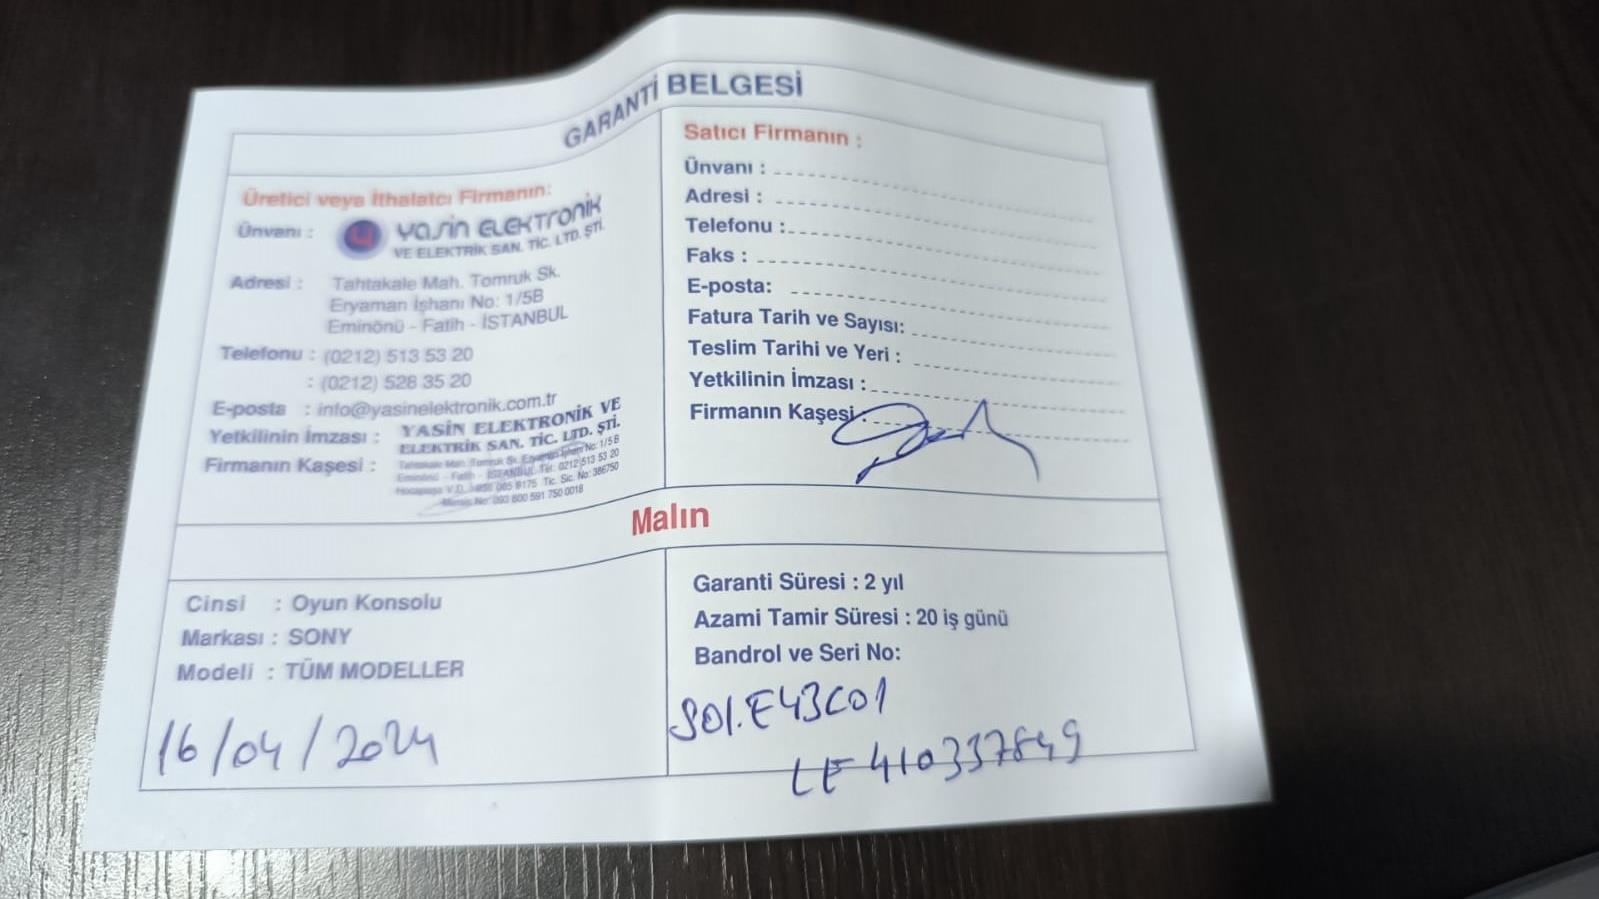 GARANTİ BELGESİ
Üretici veya İthalatcı Firmanın:
Ünvanı :
YASİN ELEKTRONİK
VE ELEKTRİK SAN. TİC. LTD. ŞTİ.
Adresi : Tahtakale Mah. Tomruk Sk.
Eryaman İşhanı No: 1/5B
Eminönü - Fatih - İSTANBUL
Telefonu : (0212) 513 53 20
: (0212) 528 35 20
E-posta : info@yasinelektronik.com.tr
Yetkilinin İmzası :
Firmanın Kaşesi :
YASİN ELEKTRONİK VE
ELEKTRİK SAN. TİC. LTD. ŞTİ.
Tahtakale Mah. Tomruk Sk. Eryaman İşhanı No: 1/5B
Eminönü - Fatih - İSTANBUL Tel: 0212 513 53 20
Hocapaşa V.D. Tic. Sic. No: 386750
Satıcı Firmanın :
Ünvanı :
Adresi :
Telefonu :
Faks :
E-posta:
Fatura Tarih ve Sayısı:
Teslim Tarihi ve Yeri :
Yetkilinin İmzası :
Firmanın Kaşesi :
Malın
Cinsi : Oyun Konsolu
Markası : SONY
Modeli : TÜM MODELLER
16/04/2024
Garanti Süresi : 2 yıl
Azami Tamir Süresi : 20 iş günü
Bandrol ve Seri No:
S01.E43C01
LE410337849